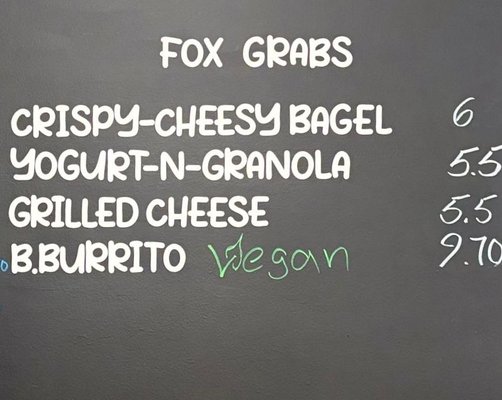 FOX GRABS
CRISPY-CHEESY BAGEL 6
YOGURT-N-GRANOLA 5.5
GRILLED CHEESE 5.5
B.BURRITO Vegan 9.70